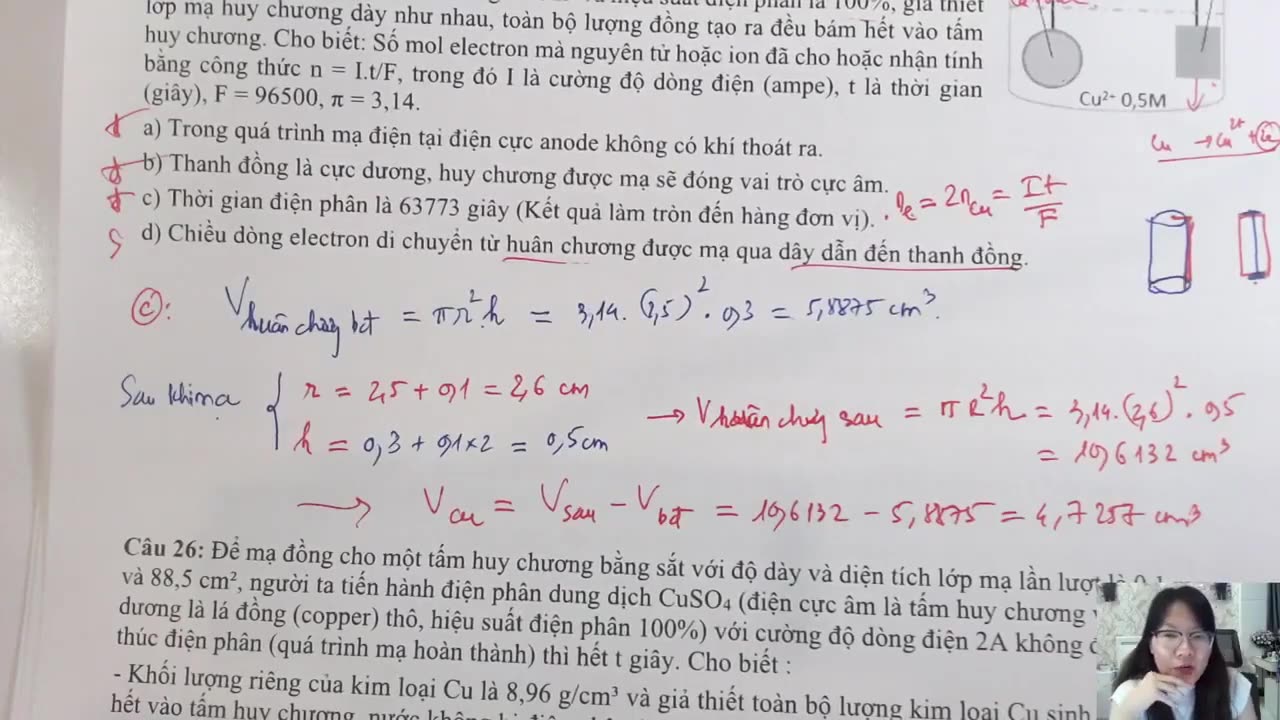 lớp mạ huy chương dày như nhau, toàn bộ lượng đồng tạo ra đều bám hết vào tấm
huy chương. Cho biết: Số mol electron mà nguyên tử hoặc ion đã cho hoặc nhận tính
bằng công thức n = I.t/F, trong đó I là cường độ dòng điện (ampe), t là thời gian
(giây), F = 96500, π = 3,14.
Cu²⁺ 0,5M
Cu → Cu²⁺ + 2e
a) Trong quá trình mạ điện tại điện cực anode không có khí thoát ra.
b) Thanh đồng là cực dương, huy chương được mạ sẽ đóng vai trò cực âm.
c) Thời gian điện phân là 63773 giây (Kết quả làm tròn đến hàng đơn vị).
nₑ = 2n_Cu = It/F
d) Chiều dòng electron di chuyển từ huân chương được mạ qua dây dẫn đến thanh đồng.
S
c): V huân chương bđ = πr²h = 3,14.(2,5)².0,3 = 5,8875 cm³.
Sau khi mạ { r = 2,5 + 0,1 = 2,6 cm
h = 0,3 + 0,1×2 = 0,5cm
→ V huân chương sau = πR²h = 3,14.(2,6)².0,5
= 10,6132 cm³
→ V Cu = V sau − V bđ = 10,6132 − 5,8875 = 4,7257 cm³
Câu 26: Để mạ đồng cho một tấm huy chương bằng sắt với độ dày và diện tích lớp mạ lần lượt là
và 88,5 cm², người ta tiến hành điện phân dung dịch CuSO₄ (điện cực âm là tấm huy chương
dương là lá đồng (copper) thô, hiệu suất điện phân 100%) với cường độ dòng điện 2A không
thúc điện phân (quá trình mạ hoàn thành) thì hết t giây. Cho biết :
- Khối lượng riêng của kim loại Cu là 8,96 g/cm³ và giả thiết toàn bộ lượng kim loại Cu sinh
hết vào tấm huy chương, nước không bị điện